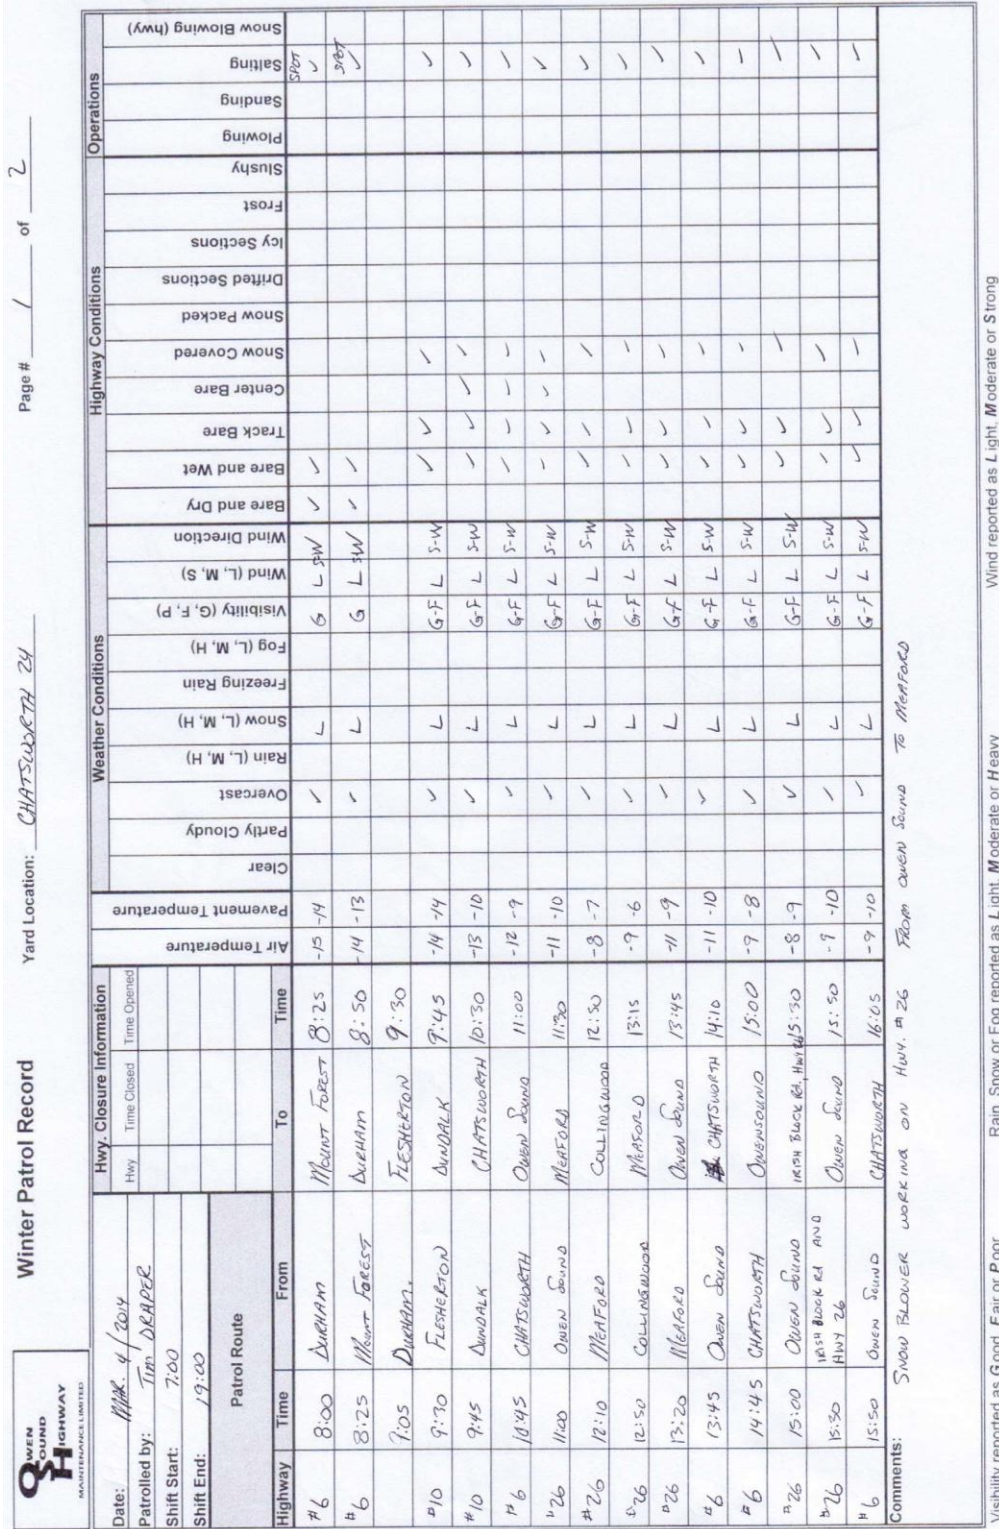 OWEN
SOUND
HIGHWAY
MAINTENANCE LIMITED
Winter Patrol Record
Yard Location: CHATSWORTH 24
Page # 1 of 2
Date: MAR. 4/2014
Patrolled by: Tim DRAPER
Shift Start: 7:00
Shift End: 19:00
Hwy. Closure Information
Hwy Time Closed Time Opened
Patrol Route
Weather Conditions
Highway Conditions
Operations
Highway Time From To Time Air Temperature Pavement Temperature Clear Partly Cloudy Overcast Rain (L, M, H) Snow (L, M, H) Freezing Rain Fog (L, M, H) Visibility (G, F, P) Wind (L, M, S) Wind Direction Bare and Dry Bare and Wet Track Bare Center Bare Snow Covered Snow Packed Drifted Sections Icy Sections Frost Slushy Plowing Sanding Salting Snow Blowing (hwy)
#6 8:00 DURHAM MOUNT FOREST 8:25 -15 -14 ✓ L G L S-W ✓ ✓ SPOT ✓
#6 8:25 MOUNT FOREST DURHAM 8:50 -14 -13 ✓ L G L S-W ✓ ✓ SPOT ✓
9:05 DURHAM. FLESHERTON 9:30
#10 9:30 FLESHERTON DUNDALK 9:45 -14 -14 ✓ L G-F L S-W ✓ ✓ ✓ ✓
#10 9:45 DUNDALK CHATSWORTH 10:30 -13 -10 ✓ L G-F L S-W ✓ ✓ ✓ ✓ ✓
#6 10:45 CHATSWORTH OWEN SOUND 11:00 -12 -9 ✓ L G-F L S-W ✓ ✓ ✓ ✓ ✓
#26 11:00 OWEN SOUND MEAFORD 11:30 -11 -10 ✓ L G-F L S-W ✓ ✓ ✓ ✓ ✓
#26 12:10 MEAFORD COLLINGWOOD 12:50 -8 -7 ✓ L G-F L S-W ✓ ✓ ✓ ✓
#26 12:50 COLLINGWOOD MEAFORD 13:15 -9 -6 ✓ L G-F L S-W ✓ ✓ ✓ ✓
#26 13:20 MEAFORD OWEN SOUND 13:45 -11 -9 ✓ L G-F L S-W ✓ ✓ ✓ ✓
#6 13:45 OWEN SOUND CHATSWORTH 14:10 -11 -10 ✓ L G-F L S-W ✓ ✓ ✓ ✓
#6 14:45 CHATSWORTH OWENSOUND 15:00 -9 -8 ✓ L G-F L S-W ✓ ✓ ✓ ✓
#26 15:00 OWEN SOUND IRISH BLOCK Rd, HWY 26 15:30 -8 -9 ✓ L G-F L S-W ✓ ✓ ✓ ✓
#26 15:30 IRISH BLOCK RD AND HWY 26 OWEN SOUND 15:50 -9 -10 ✓ L G-F L S-W ✓ ✓ ✓ ✓
#6 15:50 OWEN SOUND CHATSWORTH 16:05 -9 -10 ✓ L G-F L S-W ✓ ✓ ✓ ✓
Comments: SNOW BLOWER WORKING ON HWY. #26 FROM OWEN SOUND TO MEAFORD
Visibility reported as Good, Fair or Poor
Rain, Snow or Fog reported as Light, Moderate or Heavy
Wind reported as Light, Moderate or Strong